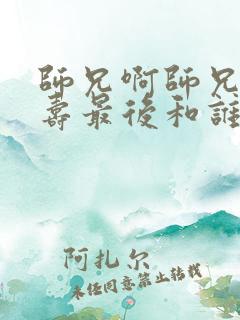 師兄啊師兄
壽最後和誰
阿扎尔
未经同意禁止转载